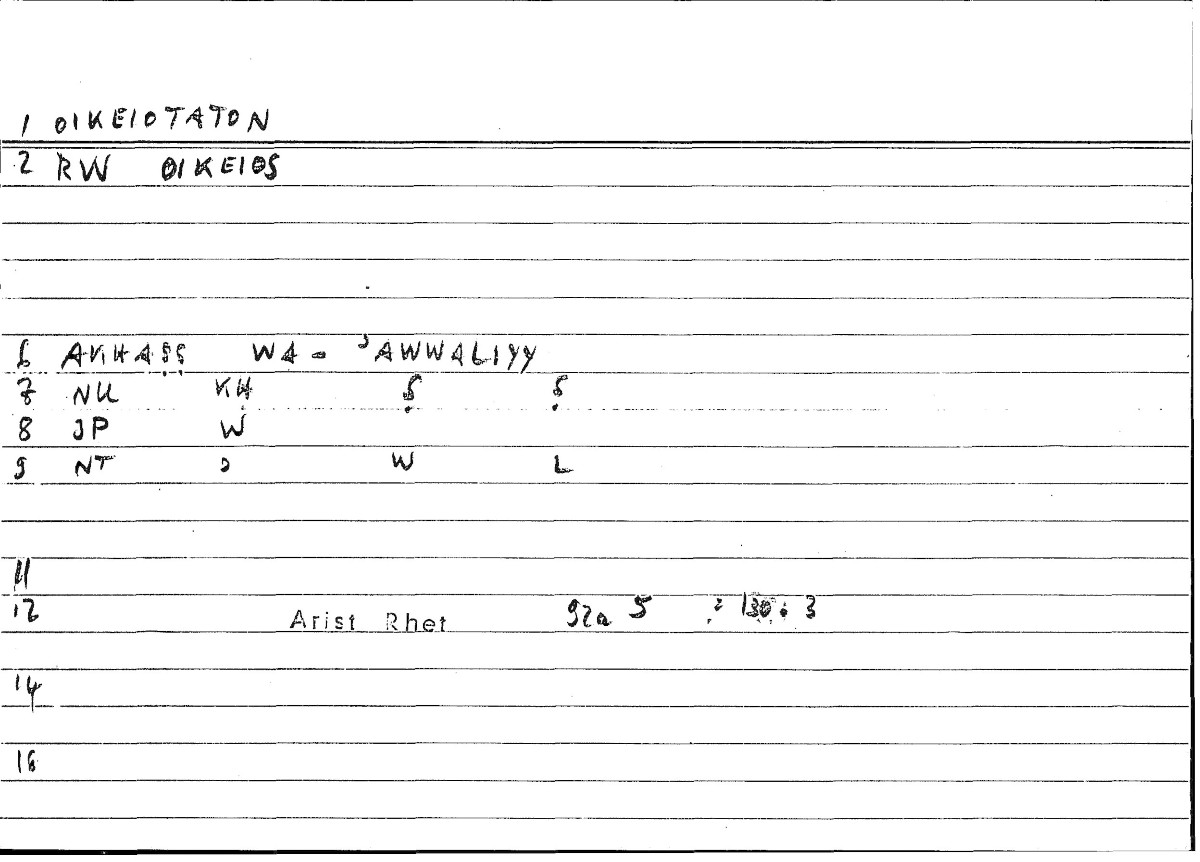 1 OIKEIOTATON
2 RW OIKEIOS
6 AKHAṢṢ WA- ʾAWWALIYY
7 NU KH Ṣ Ṣ
8 JP W
9 NT ʾ W L
11
12 Arist Rhet 92a 5 : 130: 3
14
16